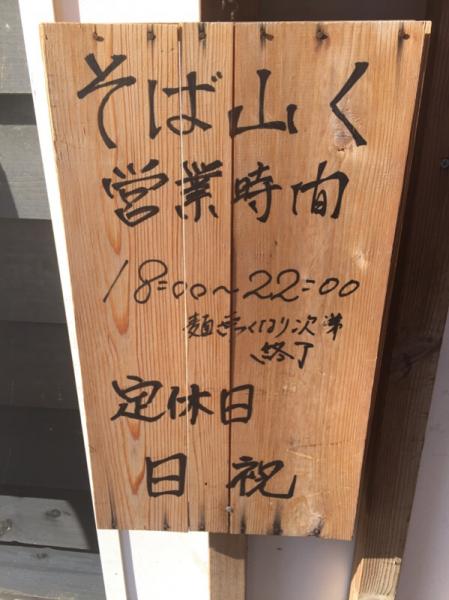 そば山く
営業時間
18:00〜22:00
麺きっくなり次第
終了
定休日
日 祝